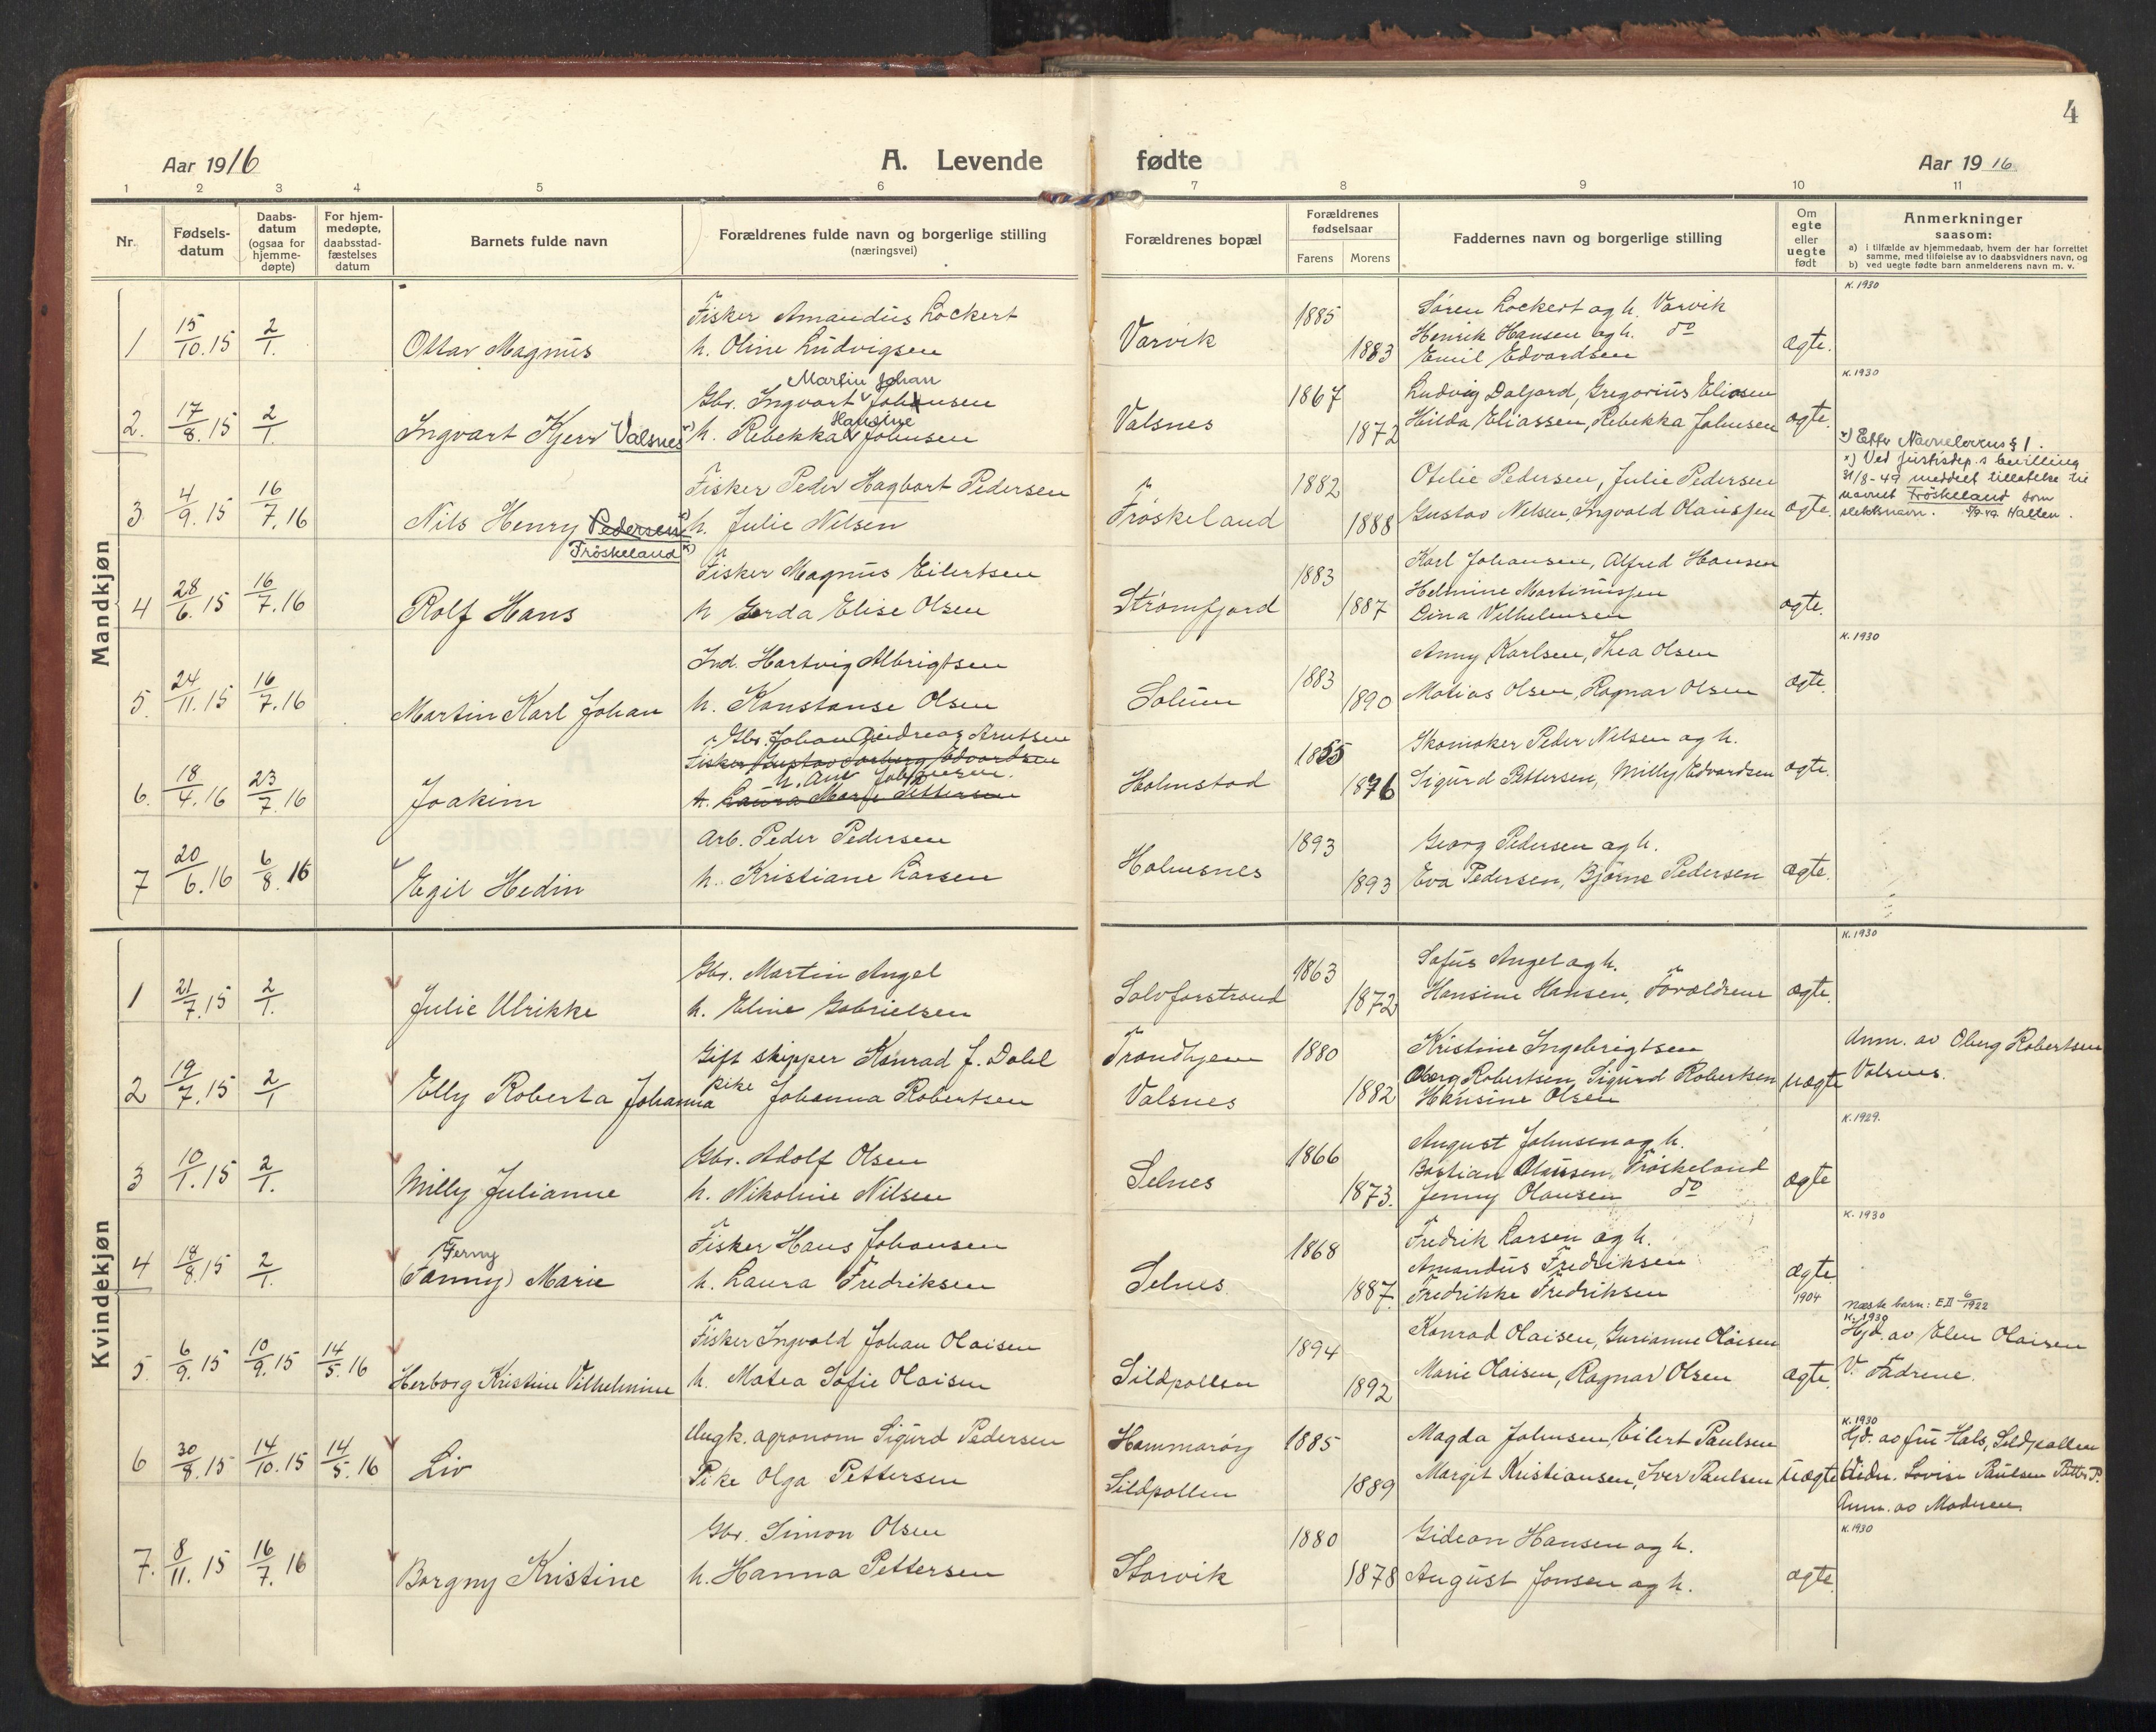 4
Aar 1916
A. Levende fødte
Aar 1916
1 2 3 4 5 6 7 8 9 10 11
Nr.
Fødsels-
datum
Daabs-
datum
(ogsaa for
hjemme-
døpte)
For hjem-
medøpte,
daabsstad-
fæstelses
datum
Barnets fulde navn
Forældrenes fulde navn og borgerlige stilling
(næringsvei)
Forældrenes bopæl
Forældrenes
fødselsaar
Farens Morens
Faddernes navn og borgerlige stilling
Om
egte
eller
uegte
født
Anmerkninger
saasom:
a) i tilfælde av hjemmedaab, hvem der har forrettet
samme, med tilføielse av to daabsvidners navn, og
b) ved uegte fødte barn anmelderens navn m. v.
Mandkjøn
K. 1930
Fisker Amandus Lockert 1885 Søren Lockert og h. Varvik
1 15/10.15 2/1. Ottar Magnus h. Oline Ludvigsen Varvik 1883 Henrik Hansen og h. do ægte.
Emil Edvardsen
K. 1930
Martin Johan
Gbr. Ingvart Johnsen 1867 Ludvig Daljord, Gregorius Eliasen
Hansine
2. 17/8.15 2/1. Ingvart Kjerr Valsnes x) h. Rebekka Johnsen Valsnes 1872 Hilda Eliassen, Rebekka Johnsen ægte.
x) Efter Navnelovens § 1.
x) Ved Justisdep.s bevilling
31/8-49 meddelt tillatelse til
navnet Frøskeland som
slektsnavn. Hatten.
Fisker Peder Hagbart Pedersen 1882 Otelie Pedersen, Julie Pedersen
3 4/9.15 16/7.16 Nils Henry Pedersen h. Julie Nilsen Frøskeland 1888 Gustav Nilsen, Ingvald Olaussen ægte.
Frøskeland x)
Fisker Magnus Eilertsen 1883 Karl Johansen, Alfred Hansen
4 28/6.15 16/7.16 Rolf Hans h Gerda Elise Olsen Strømfjord 1887 Helmine Martinussen ægte.
Lina Vilhelmsen
K. 1930
Ind. Hartvig Albrigtsen 1883 Anny Karlsen, Thea Olsen
5. 24/11.15 16/7.16 Martin Karl Johan h. Konstanse Olsen Solum 1890 Matias Olsen, Ragnar Olsen ægte.
Gbr. Johan Andreas Arntsen
Fisker Gustav Edvardsen 1855 Skomaker Peder Nilsen og h.
h. Ane Johnsen.
6. 18/4.16 23/7.16 Joakim h. Laura Marie Pettersen Holmstad 1876 Sigurd Pettersen, Milly Edvardsen ægte.
Arb. Peder Pedersen 1893 Georg Pedersen og h.
7 20/6.16 6/8.16 Egil Hedin h. Kristiane Larsen Holmsnes 1893 Eva Pedersen, Bjarne Pedersen ægte.
Kvindekjøn
K. 1930
Gbr. Martin Angel 1863 Sofus Angel og h.
1 21/7.15 2/1. Julie Ulrikke h. Eline Gabrielsen Salvforstrand 1872 Hansine Hansen, Forældrene ægte.
Gift skipper Konrad J. Dahl Trondhjem 1880 Kristine Ingebrigtsen Anm. av Oberg Robertsen
2 19/7.15 2/1 Elly Roberta Johanna pike Johanna Robertsen Valsnes 1882 Oberg Robertsen, Sigurd Robertsen uægte Valsnes.
Hansine Olsen
K. 1929.
Gbr. Adolf Olsen 1866 August Johnsen og h.
3 10/1.15 2/1. Milly Julianne h. Nikoline Nilsen Selnes 1873. Bastian Olaussen, Frøskeland ægte
Jenny Olausen do
K. 1930
Ferny Fisker Hans Johansen 1868 Fredrik Larsen og h.
4 18/8.15 2/1. (Fanny) Marie h. Laura Fredriksen Selnes 1887. Amandus Fredriksen ægte
Fredrikke Fredriksen 1904
Næste barn: E II 6/1922
K. 1930
Fisker Ingvald Johan Olaisen 1894 Konrad Olaisen, Gurianne Olaisen Hjd. av Elen Olaisen
5. 6/9.15 10/9.15 14/5.16 Herborg Kristine Vilhelmine h. Matea Sofie Olaisen Sildpollen 1892 Marie Olaisen, Ragnar Olsen ægte. V. Fadrene.
K. 1930
Ungk. agronom Sigurd Pedersen Hammarøy 1885 Magda Johnsen, Eilert Paulsen Hjd. av fru Hals, Sildpollen
6 30/8.15 14/10.15 14/5.16 Liv Pike Olga Pettersen Sildpollen 1889 Margit Kristiansen, Iver Paulsen uægte Vidn. Lovise Paulsen Petter P.
Anm. av Moderen.
K. 1930
Gbr. Simon Olsen 1880 Gideon Hansen og h.
7. 8/11.15 16/7.16 Borgny Kristine h. Hanna Pettersen Storvik 1878 August Jonsen og h. ægte.